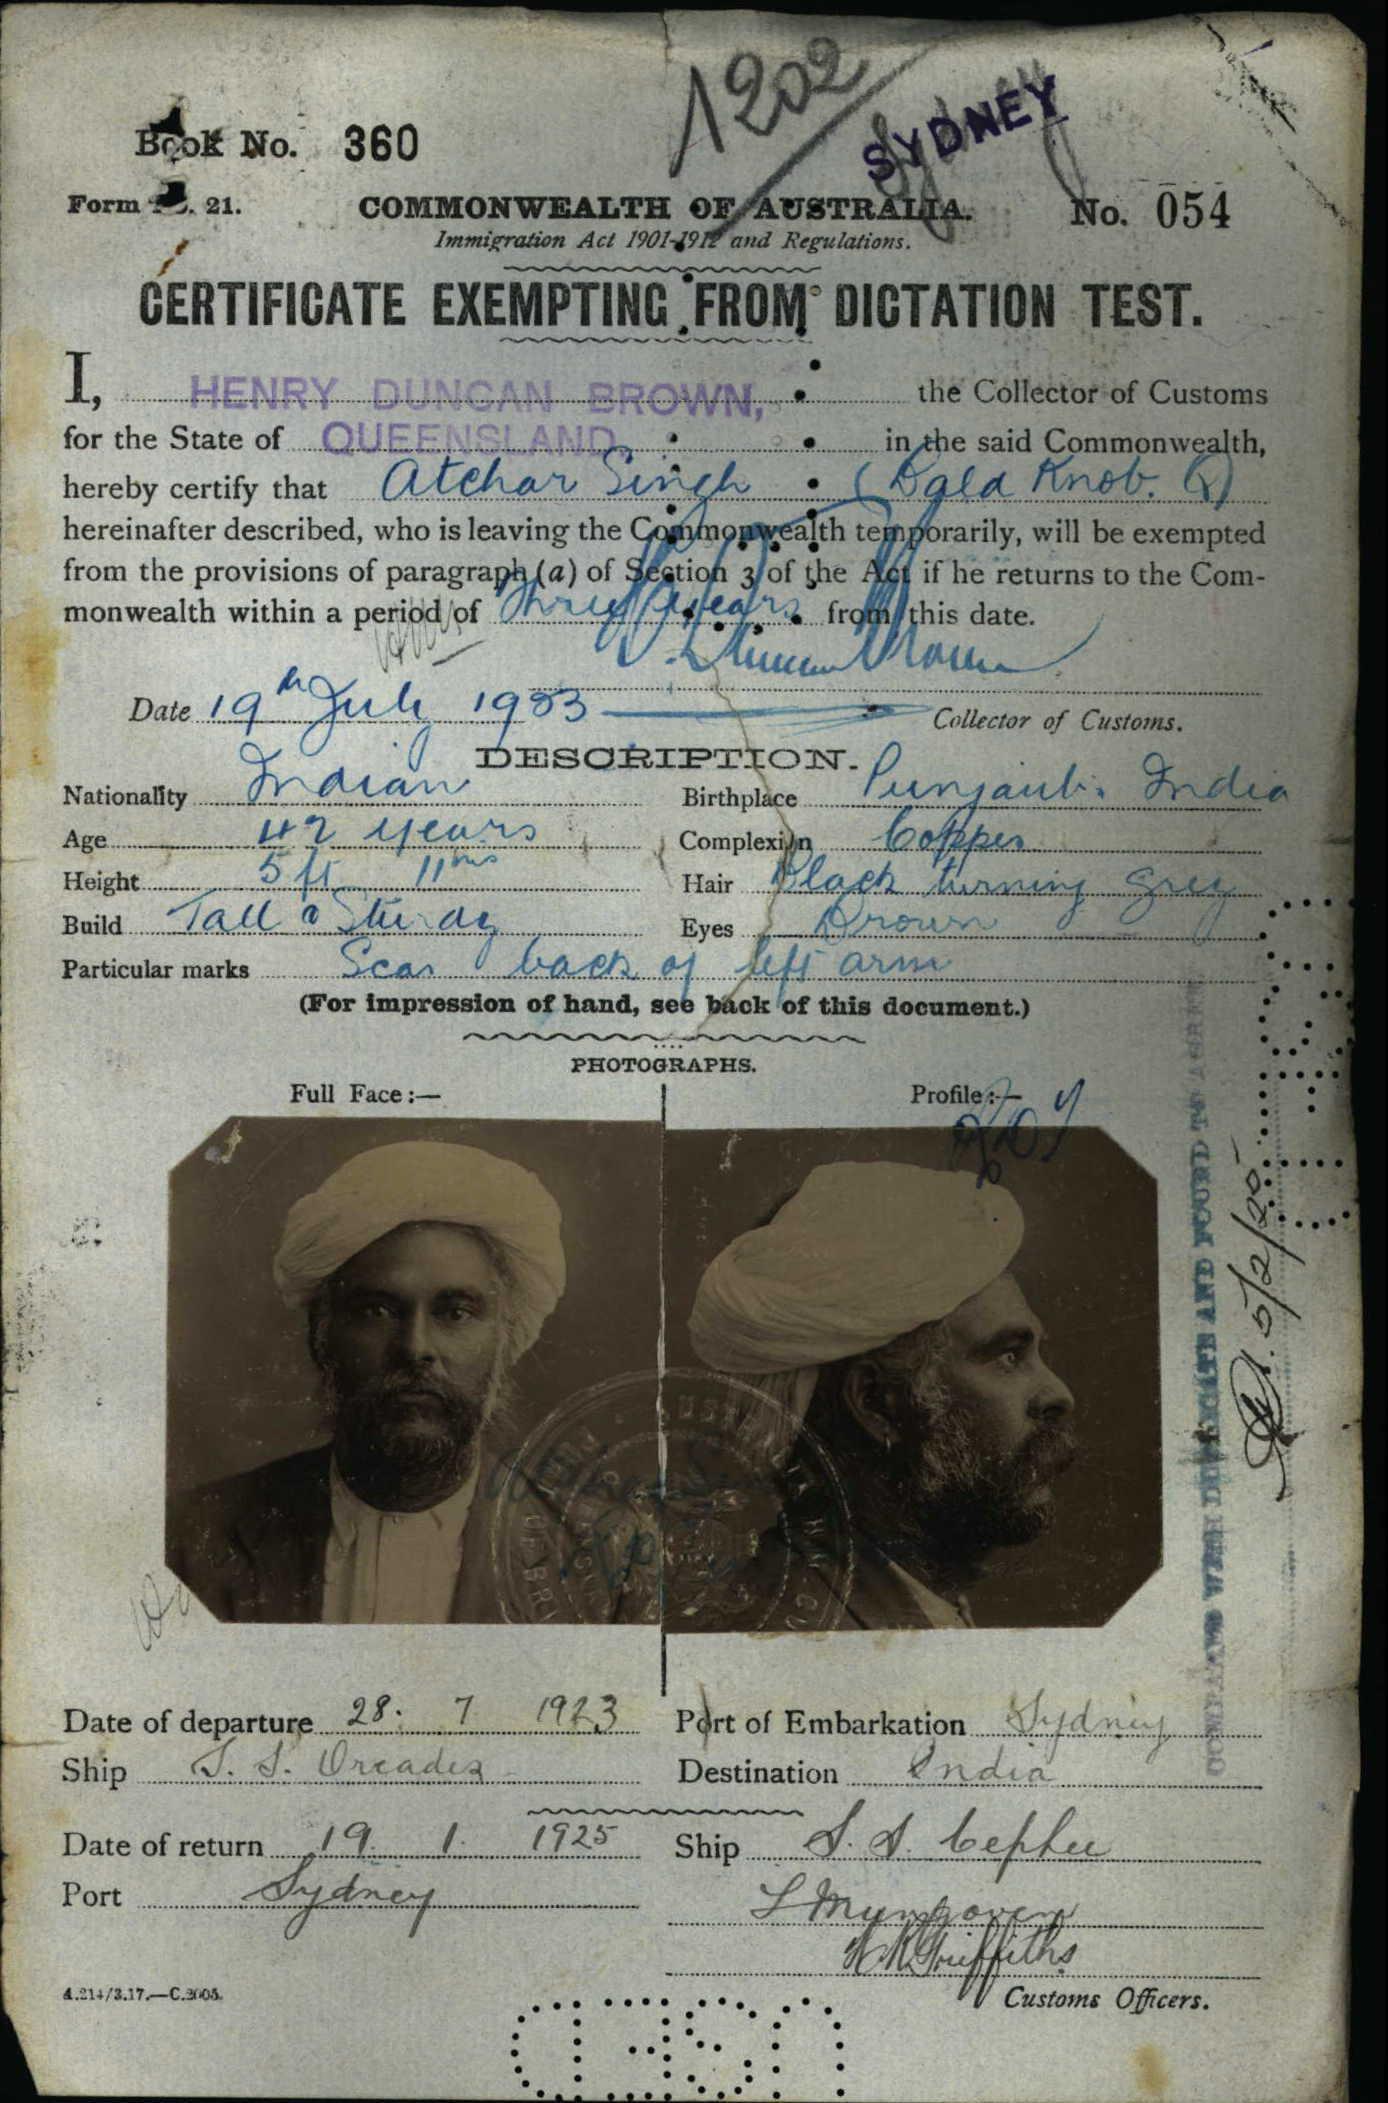 1202
SYDNEY
Book No. 360
Form 21.
COMMONWEALTH OF AUSTRALIA.
No. 054
Immigration Act 1901-1912 and Regulations.
CERTIFICATE EXEMPTING FROM DICTATION TEST.
I, HENRY DUNCAN BROWN, the Collector of Customs
for the State of QUEENSLAND in the said Commonwealth,
hereby certify that Atchar Singh (Bald Knob. Q)
hereinafter described, who is leaving the Commonwealth temporarily, will be exempted
from the provisions of paragraph (a) of Section 3 of the Act if he returns to the Com-
monwealth within a period of Three years from this date.
Date 19th July 1923
Collector of Customs.
DESCRIPTION.
Nationality Indian
Birthplace Punjaub. India
Age 42 years
Complexion Copper
Height 5 ft 11 ins
Hair Black turning grey
Build Tall & Sturdy
Eyes Brown
Particular marks Scar back of left arm
(For impression of hand, see back of this document.)
PHOTOGRAPHS.
Full Face:—
Profile:—
COMPARED WITH DUPLICATE AND FOUND TO AGREE
Date of departure 28. 7 1923
Port of Embarkation Sydney
Ship S. S. Orcades
Destination India
Date of return 19. 1. 1925
Ship S. S. Cephee
Port Sydney
H K Griffiths
A.214/3.17.—C.2005.
Customs Officers.